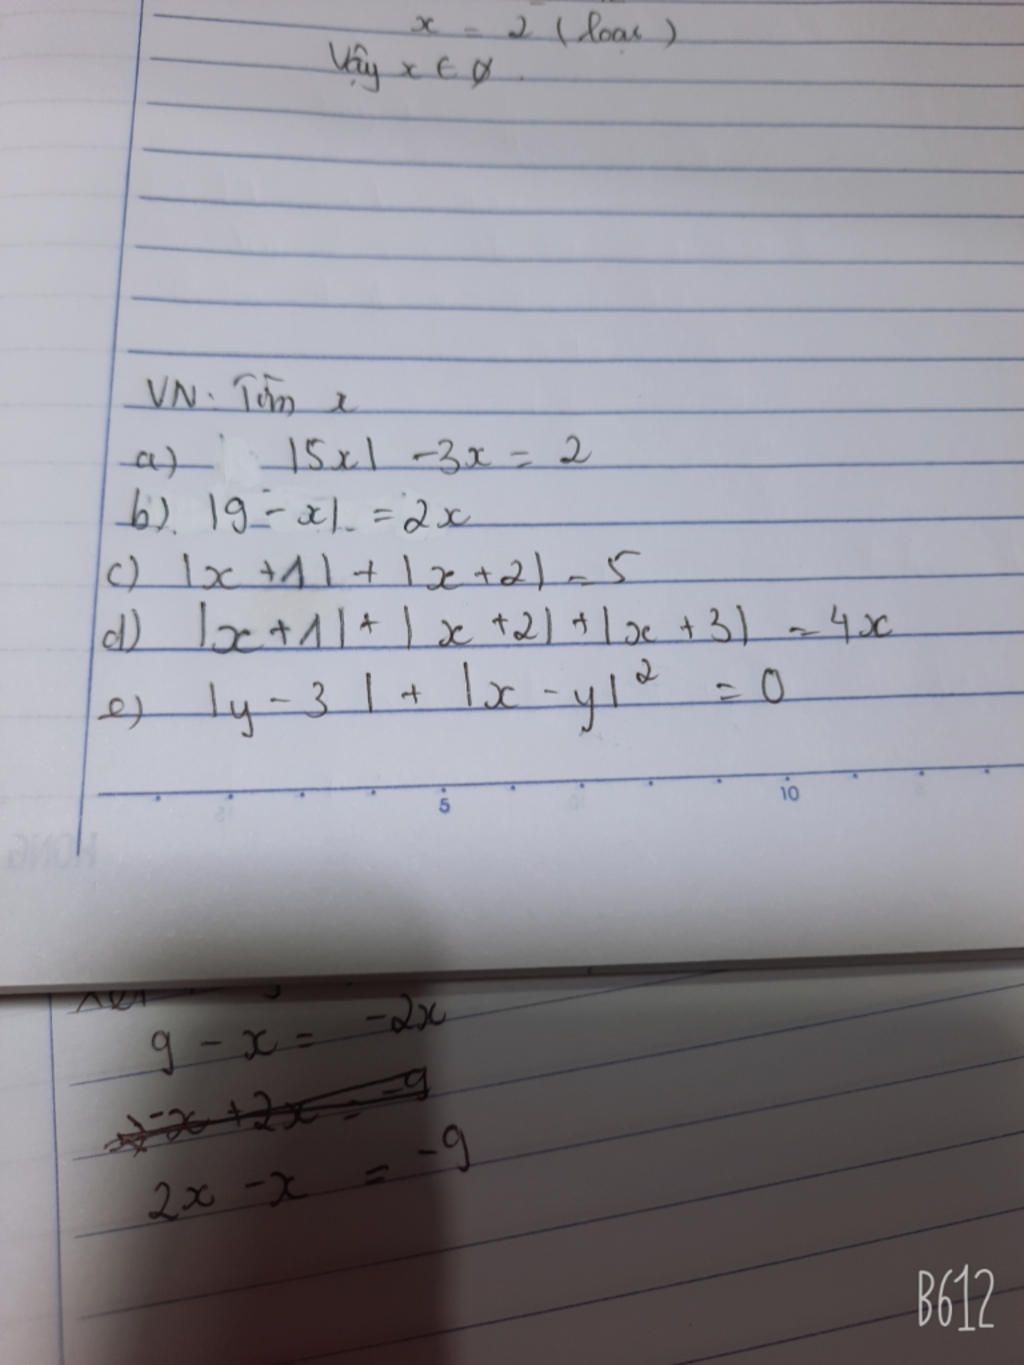 x = 2 (loại)
Vậy x ∈ ∅.
VN: Tìm x
a) |5x| - 3x = 2
b). |9 - x| = 2x
c) |x + 1| + |x + 2| = 5
d) |x + 1| + |x + 2| + |x + 3| = 4x
e) |y - 3| + |x - y|² = 0
5 10
9 - x = -2x
-x + 2x = -9
2x - x = -9
B612